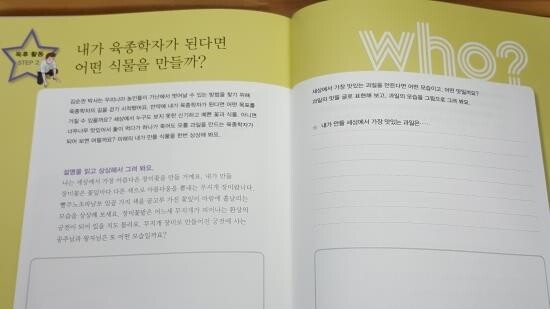 독후 활동
STEP 2
내가 육종학자가 된다면
어떤 식물을 만들까?
김순권 박사는 우리나라 농민들이 가난에서 벗어날 수 있는 방법을 찾기 위해
육종학자의 길을 걷기 시작했어요. 만약에 내가 육종학자가 된다면 어떤 목표를
가질 수 있을까요? 세상에서 누구도 보지 못한 신기하고 예쁜 꽃과 식물, 아니면
너무너무 맛있어서 둘이 먹다가 하나가 죽어도 모를 과일을 만드는 육종학자가
되어 보면 어떨까요? 미래의 내가 만들 식물을 한번 상상해 봐요.
설명을 읽고 상상해서 그려 봐요.
나는 세상에서 가장 아름다운 장미꽃을 만들 거예요. 내가 만들
장미꽃은 꽃잎마다 다른 색으로 아름다움을 뽐내는 무지개 장미랍니다.
빨주노초파남보 일곱 가지 색을 골고루 가진 꽃잎이 바람에 흩날리는
모습을 상상해 보세요. 장미꽃밭은 어느새 무지개가 피어나는 환상의
궁전이 되어 있을 지도 몰라요. 무지개 장미로 만들어진 궁전에 사는
공주님과 왕자님은 또 어떤 모습일까요?
who?
세상에서 가장 맛있는 과일을 만든다면 어떤 모습이고, 어떤 맛일까요?
과일의 맛을 글로 표현해 보고, 과일의 모습을 그림으로 그려 봐요.
내가 만들 세상에서 가장 맛있는 과일은……